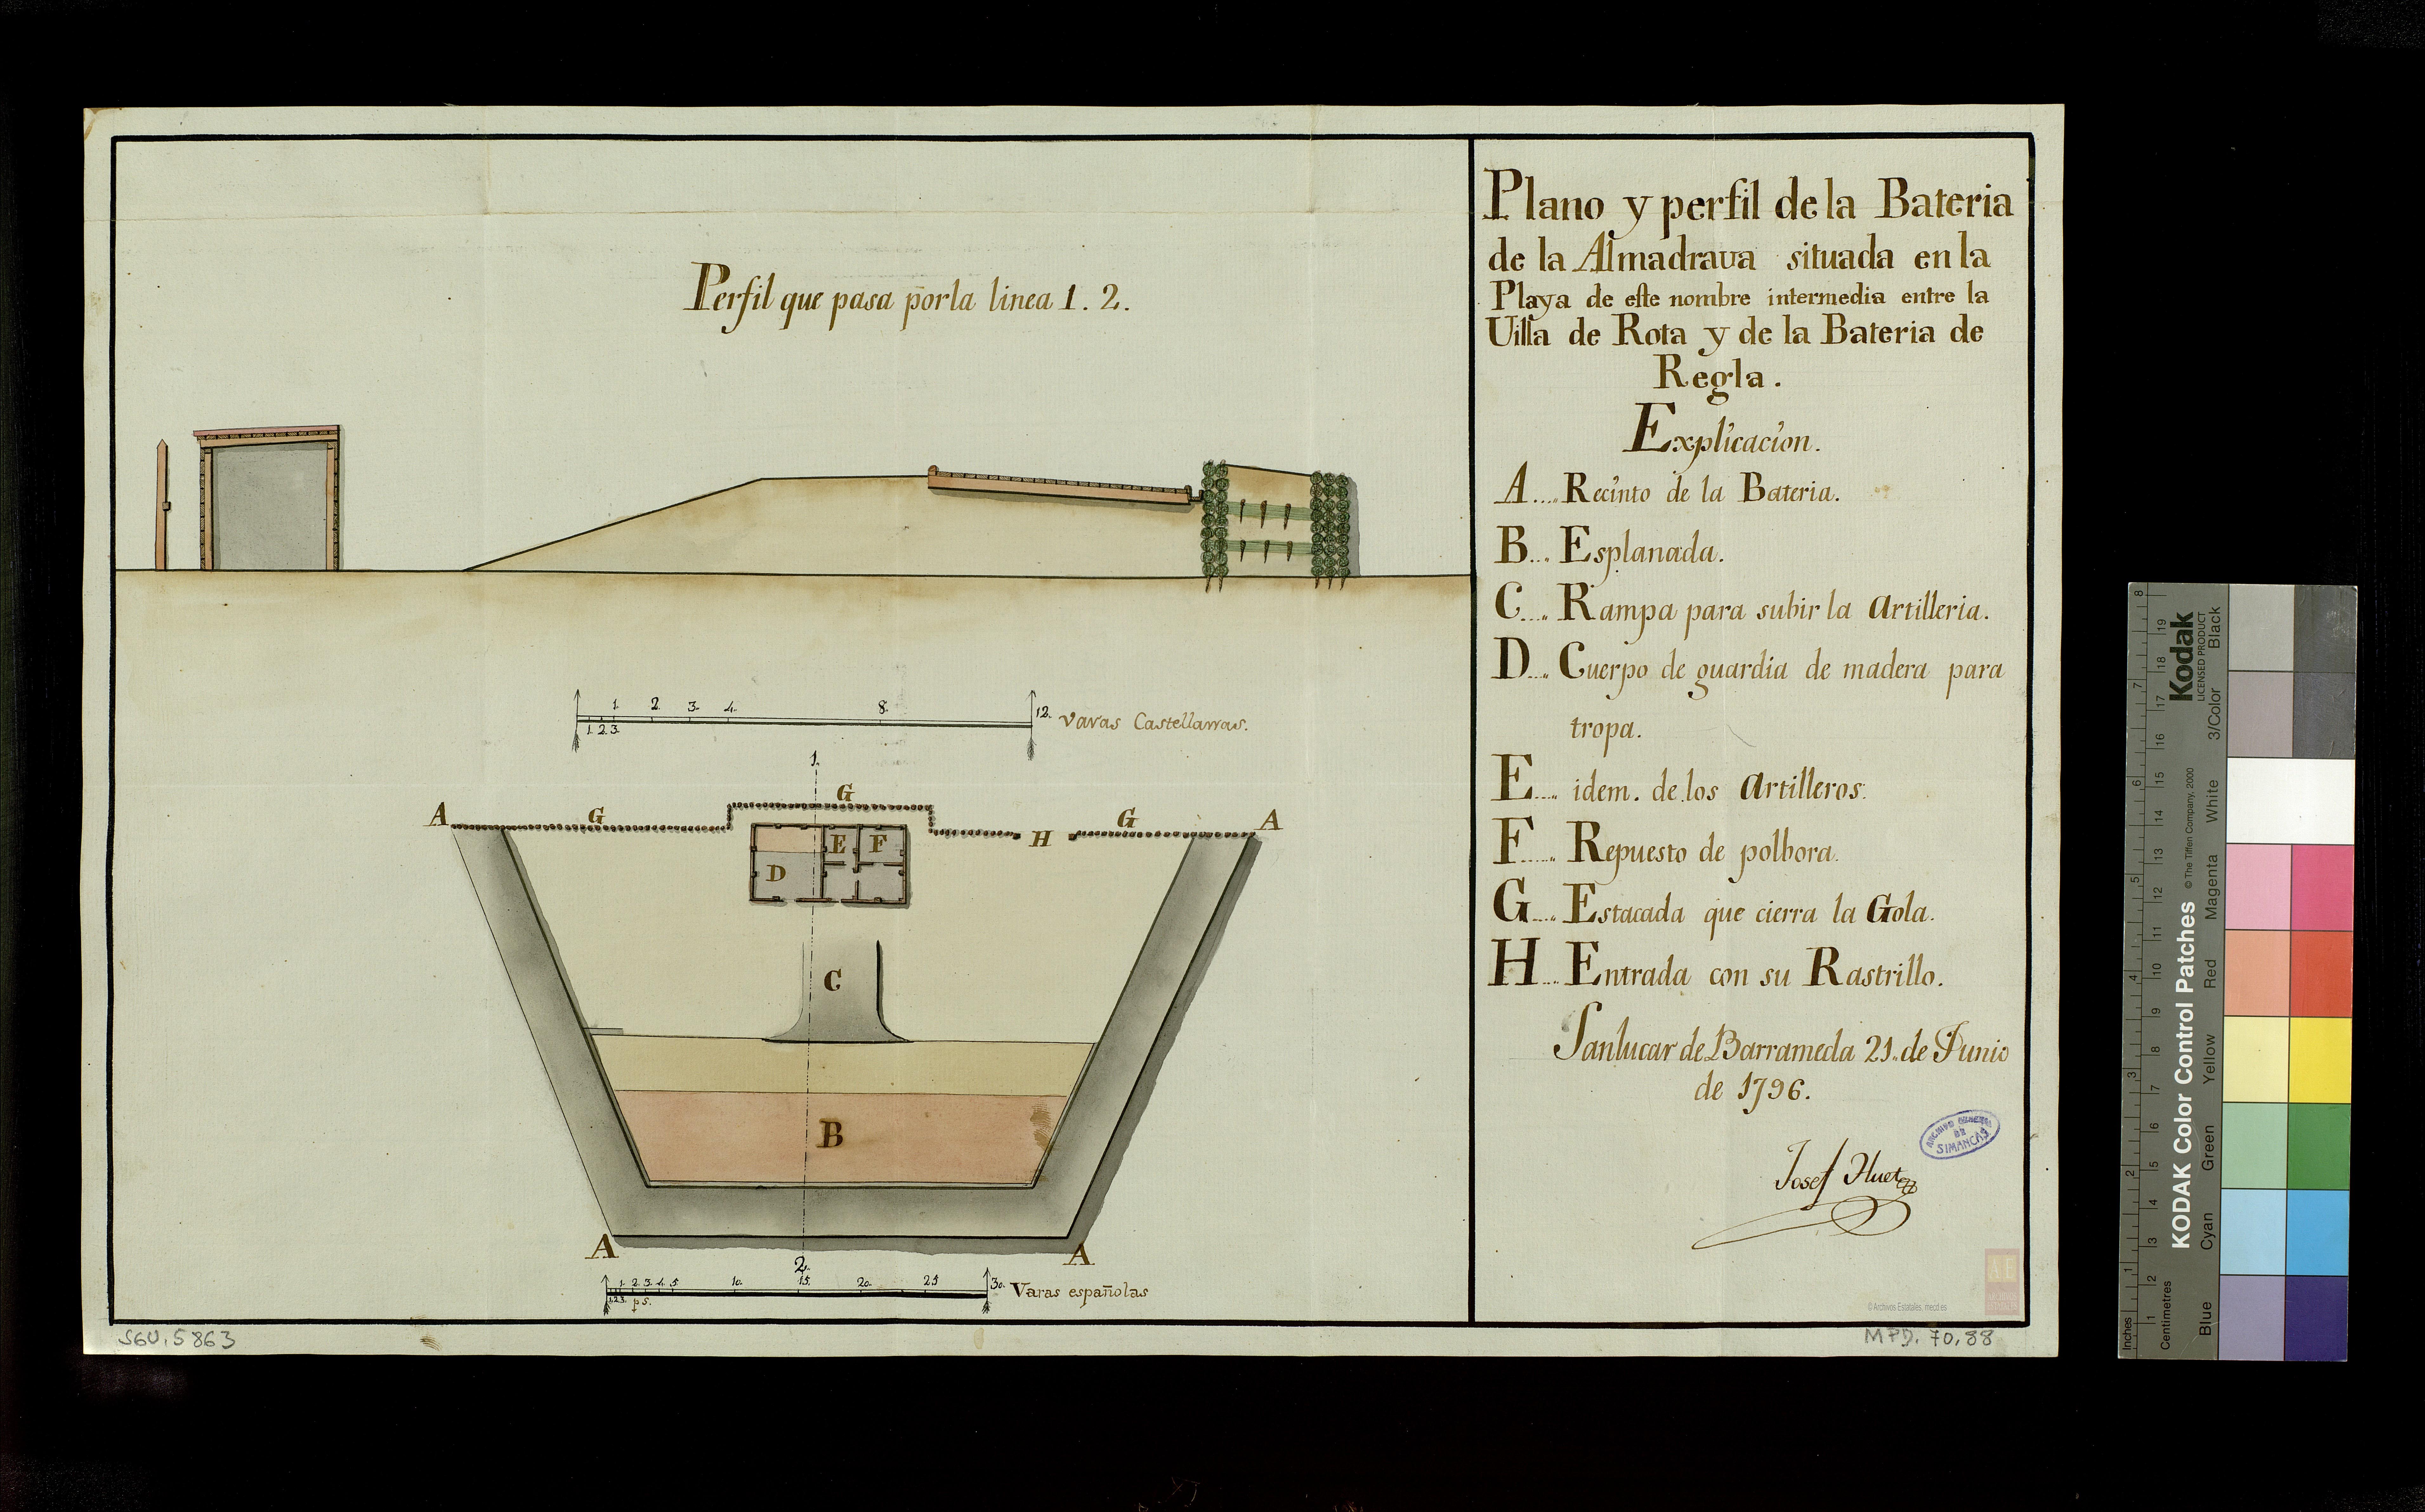 Perfil que pasa por la linea 1. 2.
1. 2. 3. 4. 8. 12. varas Castellanas.
1. 2. 3.
1.
A G G G A
H
D E F
C
B
A A
2.
1. 2. 3. 4. 5. 10. 15. 20. 25 30. Varas españolas
1.2.3. ps.
Plano y perfil de la Bateria
de la Almadrava situada en la
Playa de este nombre intermedia entre la
Uilla de Rota y de la Bateria de
Regla.
Explicacion.
A.... Recinto de la Bateria.
B.... Esplanada.
C.... Rampa para subir la Artilleria.
D.... Cuerpo de guardia de madera para
tropa.
E.... idem. de los Artilleros.
F..... Repuesto de polbora.
G.... Estacada que cierra la Gola.
H.... Entrada con su Rastrillo.
Sanlucar de Barrameda 21. de Junio
de 1796.
ARCHIVO GENERAL
DE
SIMANCAS
Josef Huet
AE
ARCHIVOS
ESTATALES
© Archivos Estatales, mecd.es
SGU, 5863
MPD. 70, 88
KODAK Color Control Patches
© The Tiffen Company, 2000
Kodak
LICENSED PRODUCT
Blue Cyan Green Yellow Red Magenta White 3/Color Black
Inches 1 2 3 4 5 6 7 8
Centimetres 1 2 3 4 5 6 7 8 9 10 11 12 13 14 15 16 17 18 19